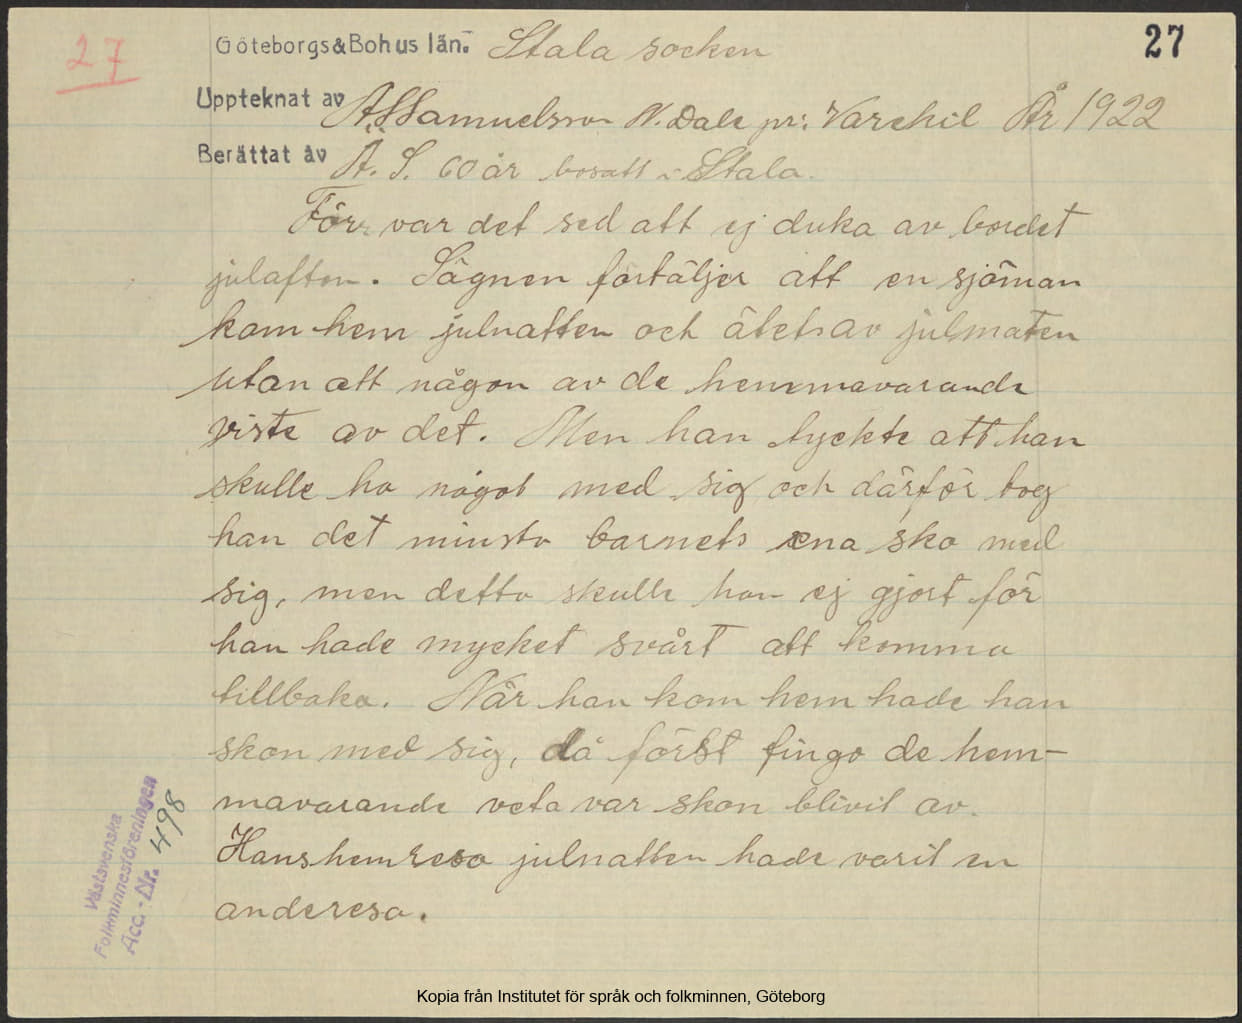 27
Göteborgs & Bohus län. Stala socken
27
Uppteknat av A. Samuelsson N. Dale pr. Varekil År 1922
Berättat av Ä. S. 60 år bosatt i Stala.
Förr var det sed att ej duka av bordet
julafton. Sägnen förtäljer att en sjöman
kom hem julnatten och åt av julmaten
utan att någon av de hemmavarande
viste av det. Men han tyckte att han
skulle ha något med sig och därför tog
han det minsta barnets ena sko med
sig, men detta skulle han ej gjort för
han hade mycket svårt att komma
tillbaka. När han kom hem hade han
skon med sig, då först fingo de hem-
mavarande veta var skon blivit av.
Hans hemresa julnatten hade varit en
anderesa.
Västsvenska
Folkminnesföreningen
Acc.-Nr. 498
Kopia från Institutet för språk och folkminnen, Göteborg